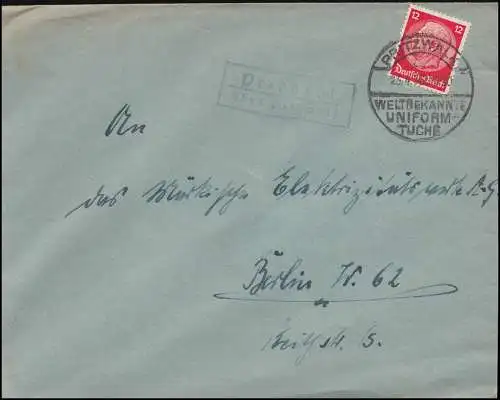 12 12
Deutsches Reich
PRITZWALK
WELTBEKANNTE
UNIFORM-
TUCHE
An
das Märkische Elektrizitätswerk A-G
Berlin W. 62